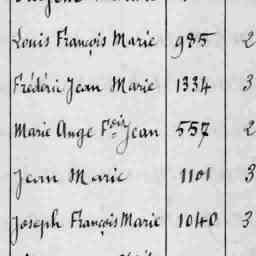 Louis François Marie 985 2
Frédéric Jean Marie 1334 3
Marie Ange Fçois Jean 557 2
Jean Marie 1101 3
Joseph François Marie 1040 3